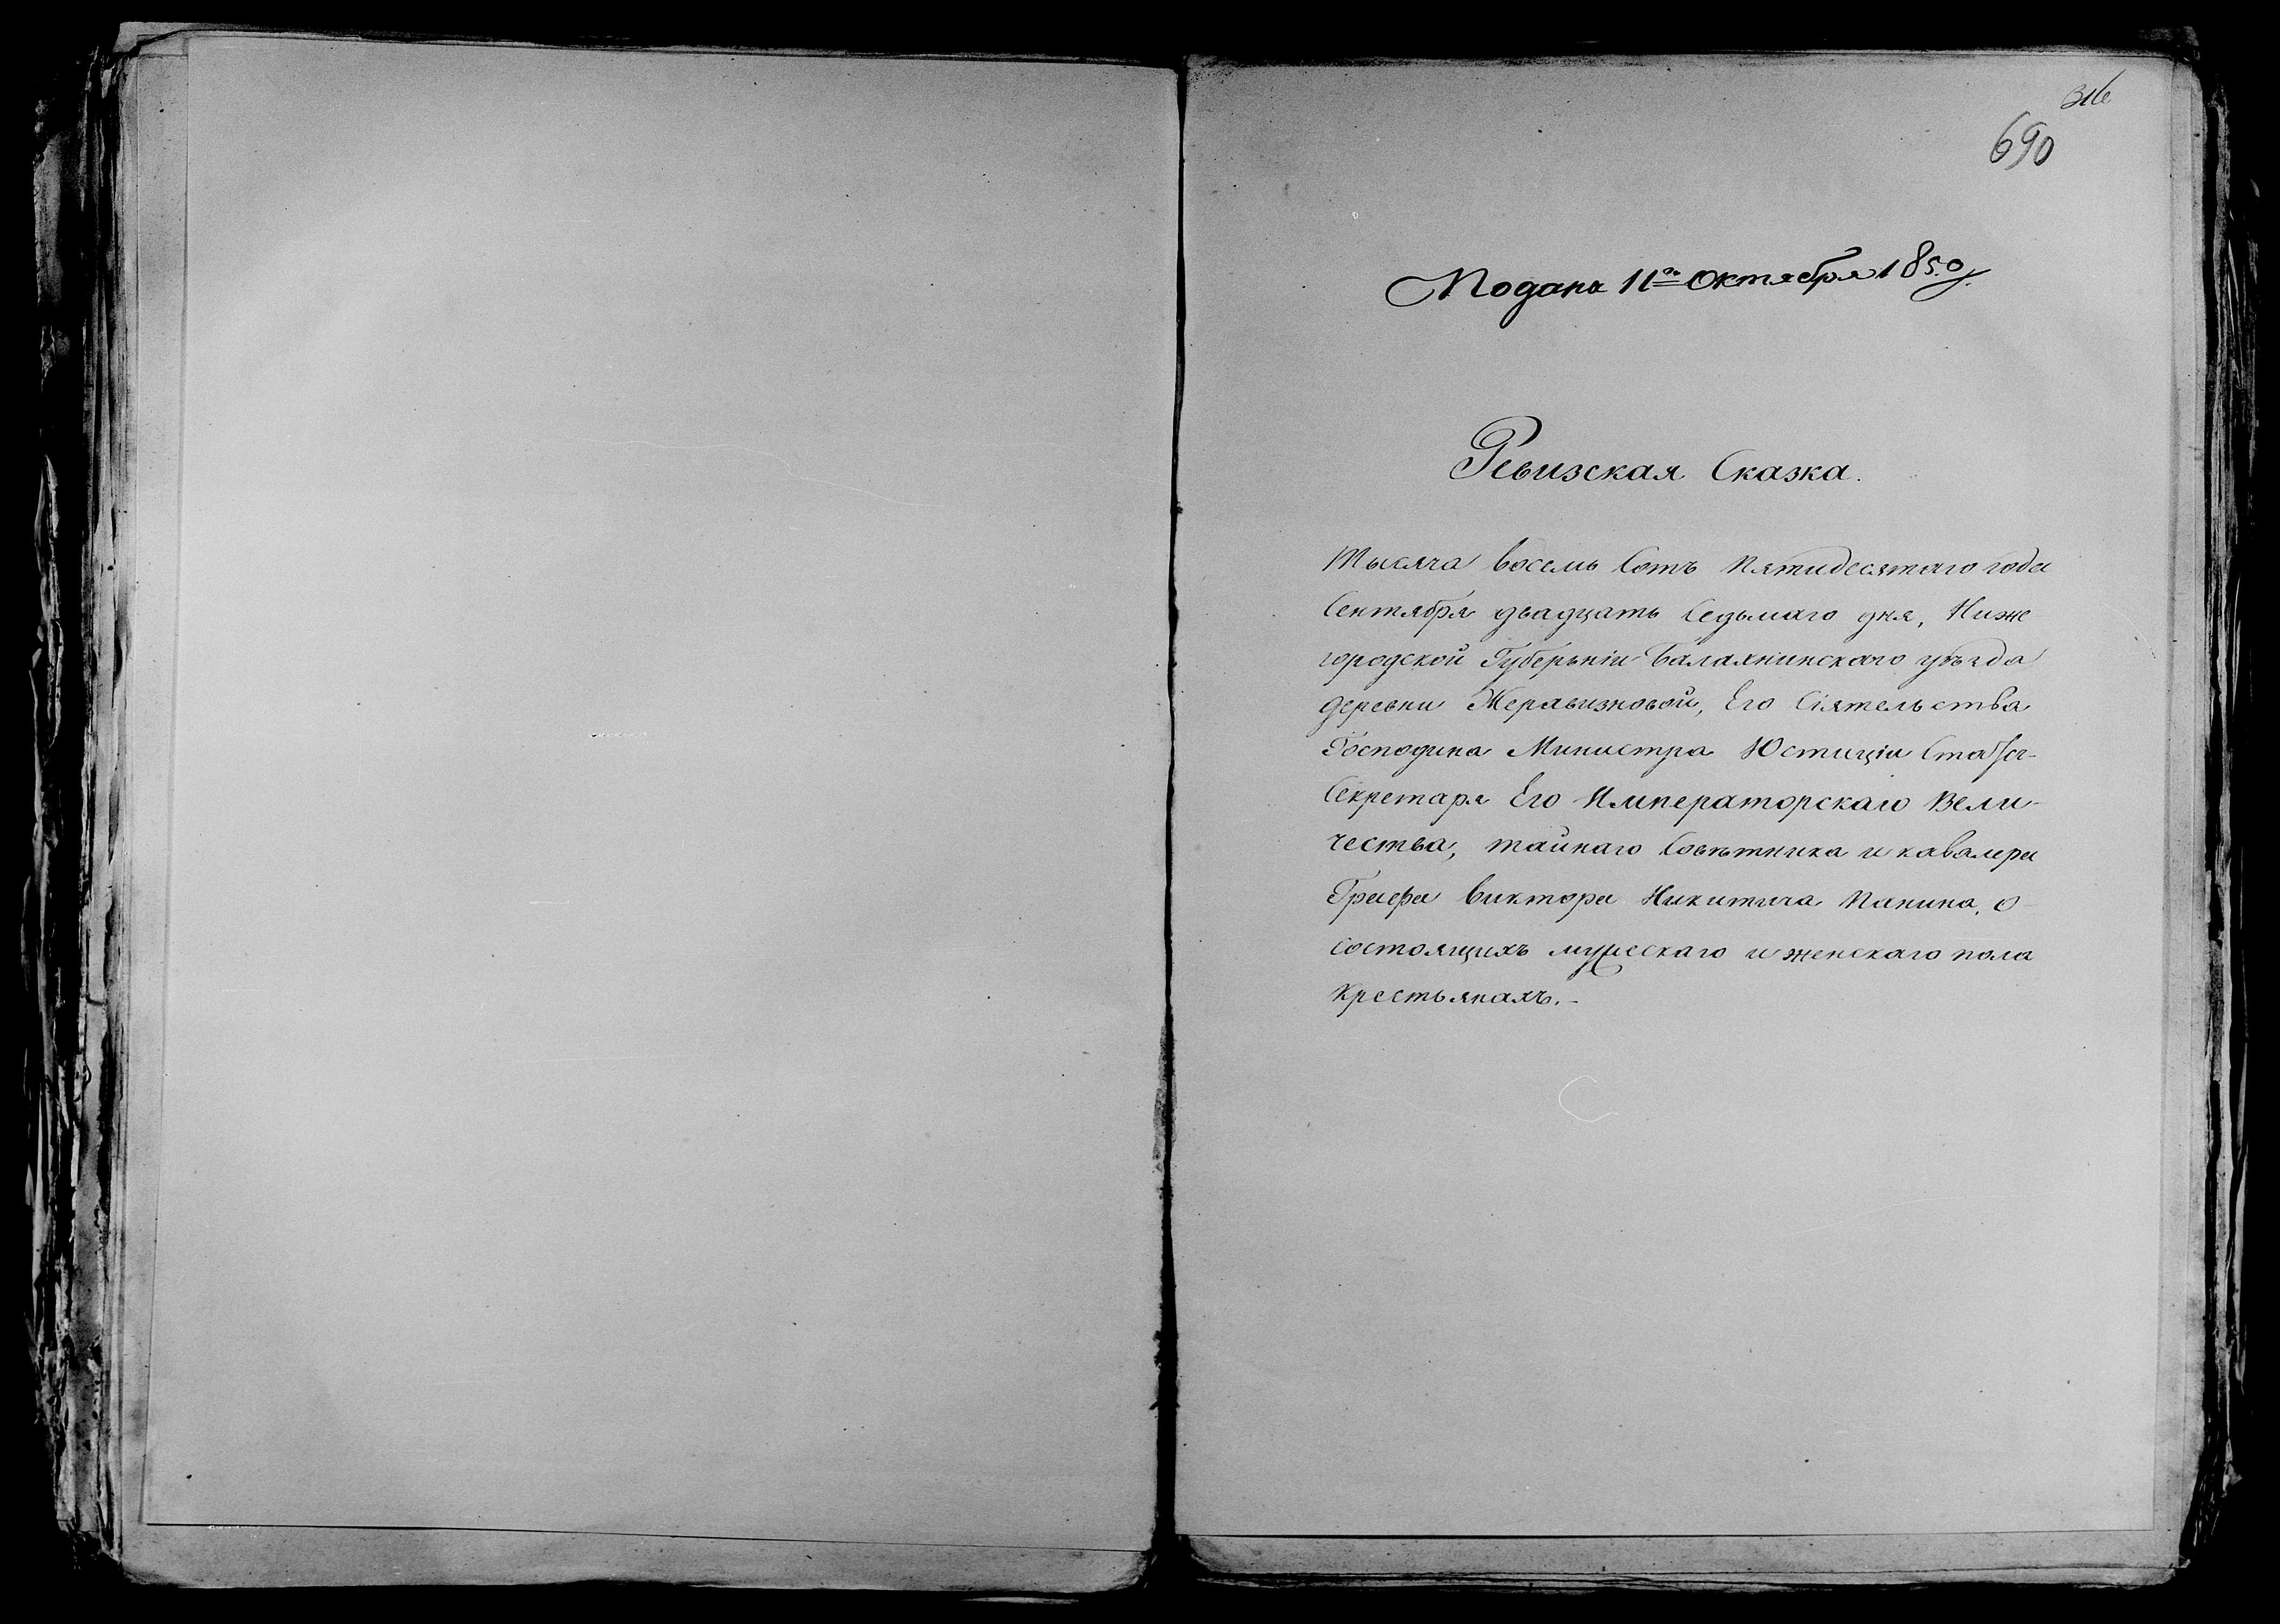 690
Подана 11го Октября 1850 г.
Ревизская Сказка.
Тысяча восемь Сотъ Пятидесятаго года
Сентября двадцать Седьмаго дня, Ниже
городской Губерьніи Балахнинскаго уѣзда
деревни Жеравизновой, Его Сіятельства
Господина Министра Юстиціи Статсъ-
Секретаря Его Императорскаго Вели-
чества, тайнаго Совѣтника и кавалера
Графа Виктора Никитича Панина, о
состоящихъ мужескаго и женскаго пола
крестьянахъ.-